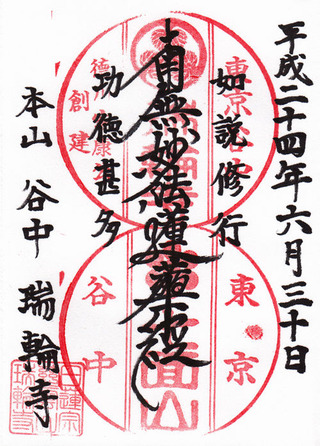 平成二十四年六月三十日
如説修行
南無妙法蓮華経
功徳甚多
本山 谷中 瑞輪寺
東京谷中
徳川家康
創建
東京
谷中